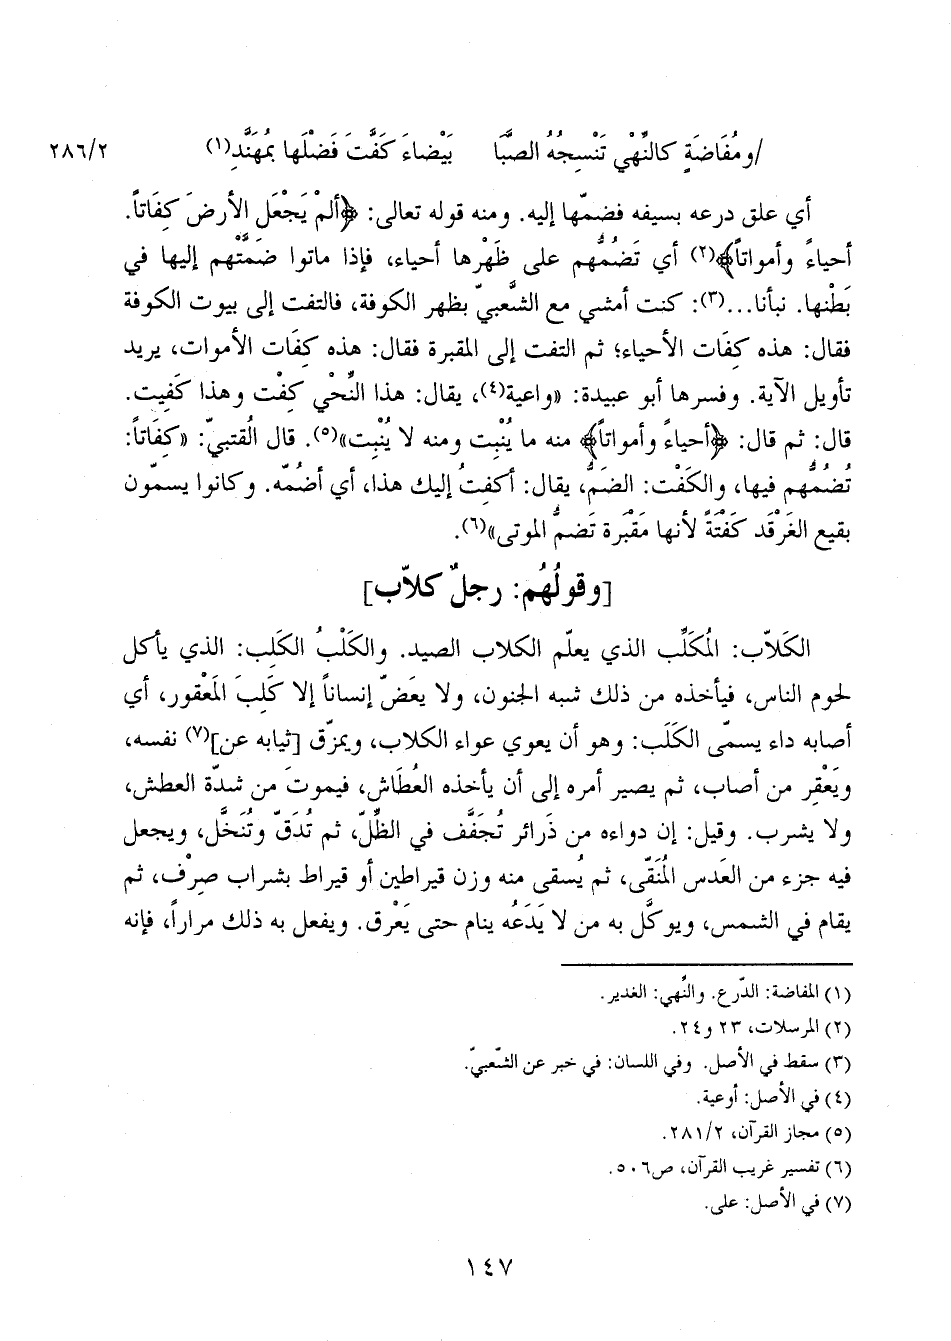 /ومُفَاضَةٍ كالنِّهْيِ تَنْسِجُهُ الصَّبَا    بَيْضَاءَ كَفَّتَ فَضْلَها بمُهَنَّدِ(١)    ٢٨٦/٢
أي علق درعه بسيفه فضمّها إليه. ومنه قوله تعالى: ﴿ألمْ يَجْعَلِ الأرضَ كِفَاتاً.
أحياءً وأمواتاً﴾(٢) أي تَضُمُّهم على ظَهْرها أحياء، فإذا ماتوا ضَمَّتْهم إليها في
بَطْنها. نبأنا...(٣): كنت أمشي مع الشَّعبيّ بظهر الكوفة، فالتفت إلى بيوت الكوفة
فقال: هذه كِفَات الأحياء؛ ثم التفت إلى المقبرة فقال: هذه كِفَات الأموات، يريد
تأويل الآية. وفسرها أبو عبيدة: «واعية(٤)، يقال: هذا النِّحْي كِفْت وهذا كَفِيت.
قال: ثم قال: ﴿أحياءً وأمواتاً﴾ منه ما يُنْبِت ومنه لا يُنْبِت»(٥). قال القُتبيّ: «كِفَاتاً:
تُضُمُّهم فيها، والكَفْت: الضَمُّ، يقال: أكفِتُ إليك هذا، أي أضُمّه. وكانوا يسمّون
بقيع الغَرْقَد كَفْتَةً لأنها مَقْبَرة تَضمُّ الموتى»(٦).
[وقولُهُم: رجلٌ كلاّب]
الكَلاّب: المُكَلِّب الذي يعلّم الكلاب الصيد. والكَلْبُ الكَلِب: الذي يأكل
لحوم الناس، فيأخذه من ذلك شبه الجنون، ولا يعَضّ إنساناً إلا كَلِبَ المَعْقور، أي
أصابه داء يسمّى الكَلَب: وهو أن يعوي عواء الكلاب، ويمزّق [ثيابه عن](٧) نفسه،
ويَعْقِر من أصاب، ثم يصير أمره إلى أن يأخذه العُطَاش، فيموتَ من شدّة العطش،
ولا يشرب. وقيل: إن دواءه من ذَرائر تُجَفَّف في الظّلّ، ثم تُدَقّ وتُنَخَّل، ويجعل
فيه جزء من العَدس المُنَقّى، ثم يُسقى منه وزن قيراطين أو قيراط بشراب صِرْف، ثم
يقام في الشمس، ويوكَّل به من لا يَدَعُه ينام حتى يَعْرق. ويفعل به ذلك مراراً، فإنه
(١) المفاضة: الدّرع. والنُّهي: الغدير.
(٢) المرسلات، ٢٣ و٢٤.
(٣) سقط في الأصل. وفي اللسان: في خبر عن الشّعبيّ.
(٤) في الأصل: أوعية.
(٥) مجاز القرآن، ٢٨١/٢.
(٦) تفسير غريب القرآن، ص٥٠٦.
(٧) في الأصل: على.
١٤٧